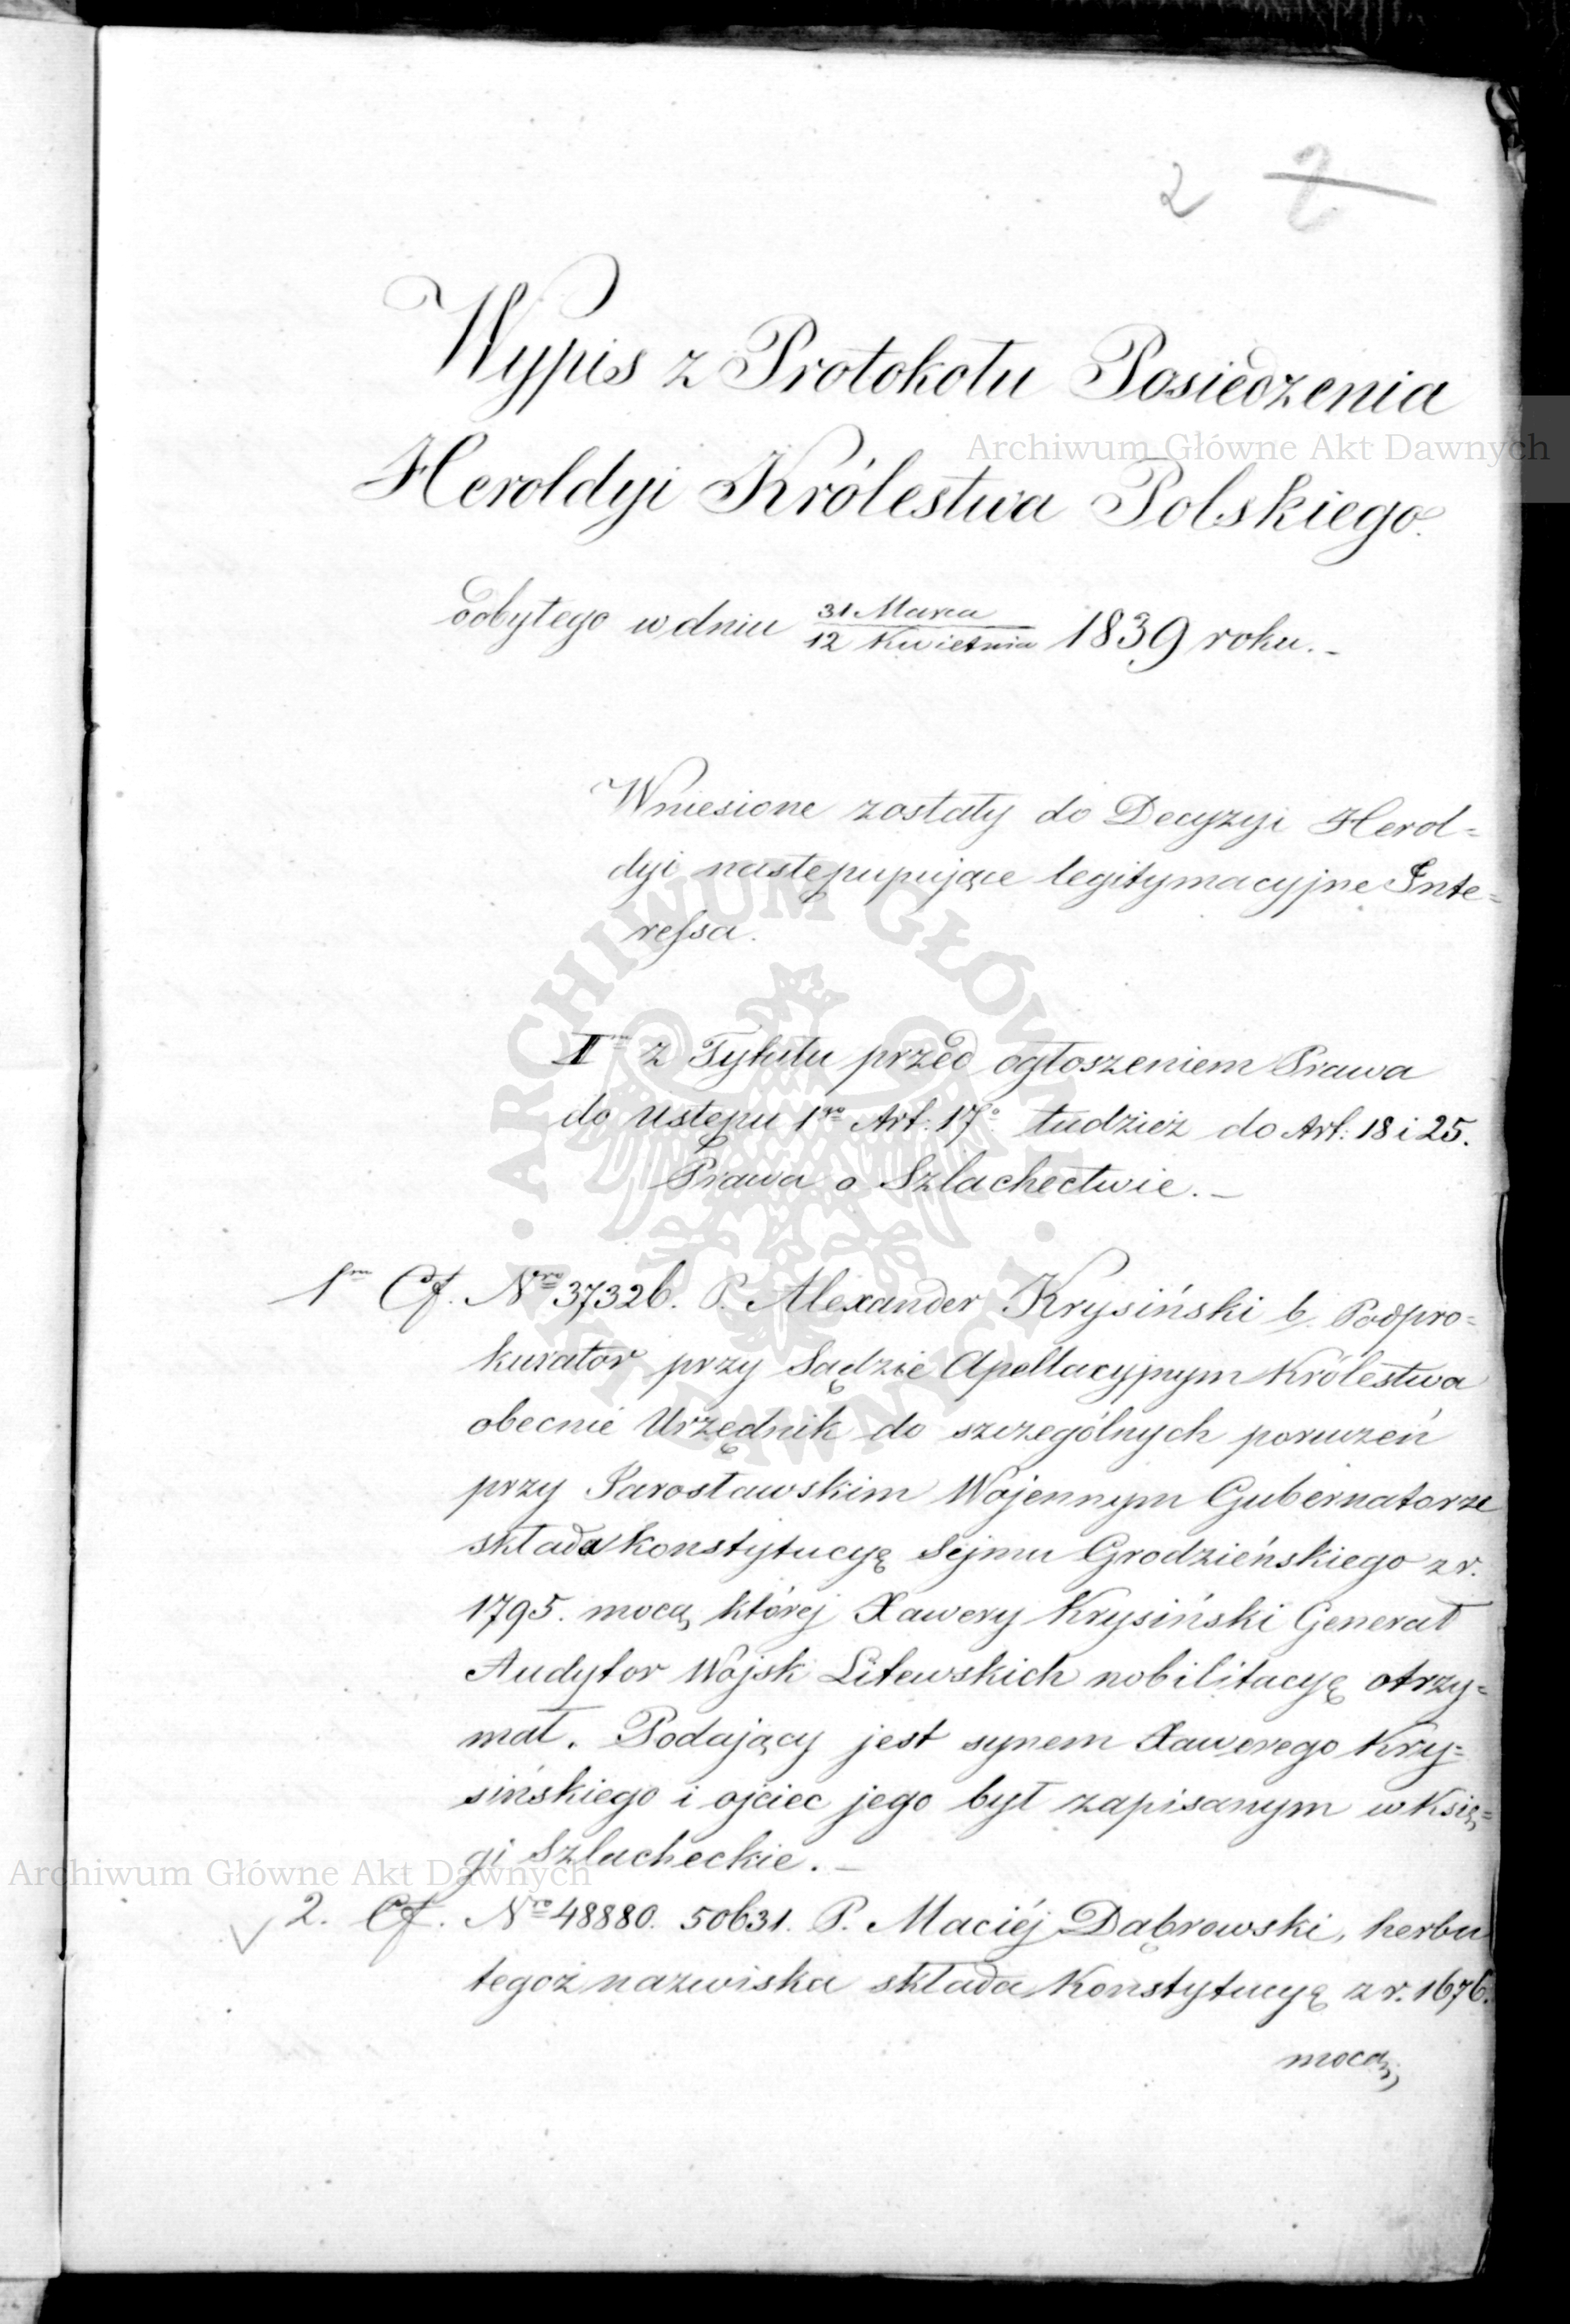 2 2
Wypis z Protokołu Posiedzenia
Archiwum Główne Akt Dawnych
Heroldyi Królestwa Polskiego.
odbytego w dniu 31 Marca / 12 Kwietnia 1839 roku. –
Wniesione zostały do Decyzyi Herol=
dyi następupujące legitymacyjne Inte=
ressa.
ARCHIWUM GŁÓWNE AKT DAWNYCH
I z Tytułu przed ogłoszeniem Prawa
do Ustępu 1go Art: 17o tudzież do Art: 18 i 25.
Prawa o Szlachectwie. –
1m Cf. Nro 37326. P. Alexander Krysiński b. Podpro=
kurator przy Sądzie Apellacyjnym Królestwa
obecnie Urzędnik do szczególnych poruczeń
przy Jarosławskim Wojennym Gubernatorze
składa konstytucyę Sejmu Grodzieńskiego z r.
1795. mocą której Xawery Krysiński Generał
Audytor Wojsk Litewskich nobilitacyę otrzy=
mał. Podający jest synem Xawerego Kry=
sińskiego i ojciec jego był zapisanym w Księ=
gi Szlacheckie. –
Archiwum Główne Akt Dawnych
2. Cf. Nro 48880. 50631. P. Maciéj Dąbrowski, herbu
tegoż nazwiska składa Konstytucyę z r. 1676.
mocą,